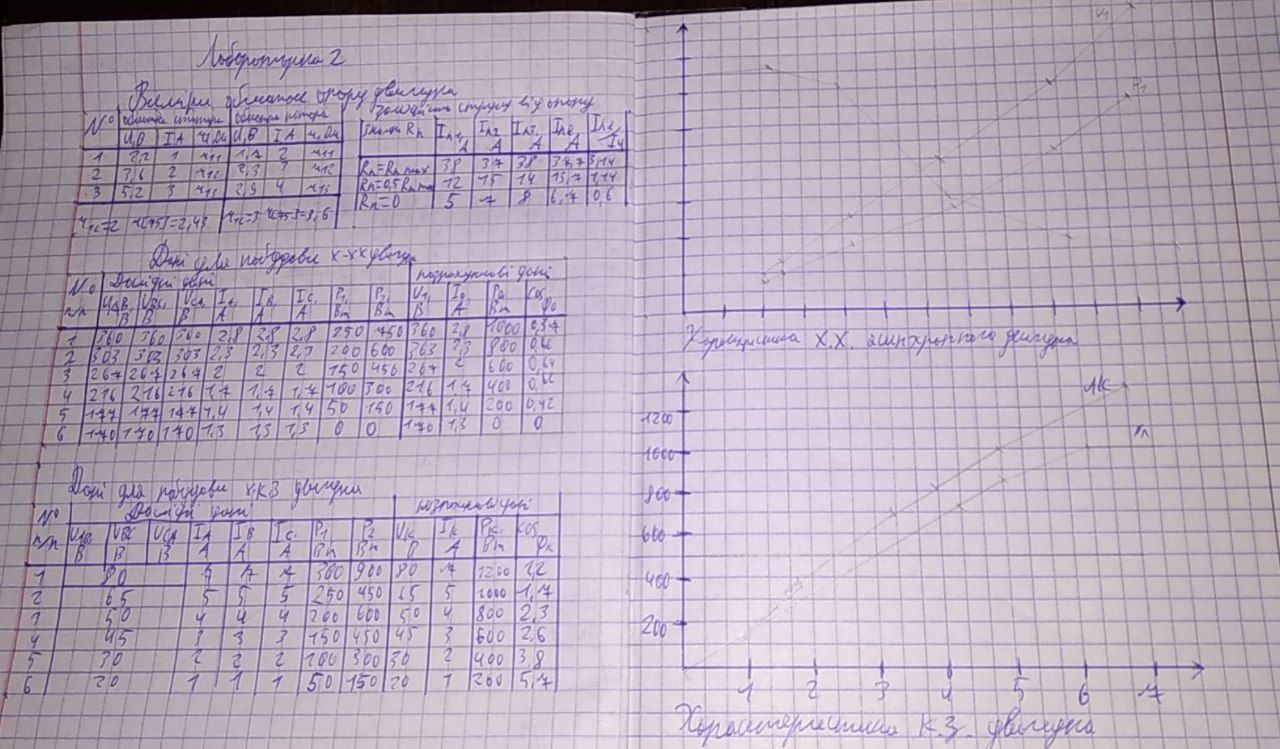 Лабораторна 2
Виміри обмоток опору двигуна
N° обмотка статора обмотка ротора
U,B I A r,Ом U,B I A r,Ом
1 2,2 1 r11 1,7 2 r11
2 3,6 2 r12 2,3 3 r12
3 5,2 3 r13 2,9 4 r13
r1c=2 r(75)=2,43 r1c=3 r(75)=3,6
залежність струму від опору
Rп Iп A Iп2 A Iп3 A Iпс A
Rп=Rп max 38 37 38 37,7 3,14
Rп=0,5Rп max 12 15 14 13,7 1,14
Rп=0 5 7 8 6,7 0,6
Дані для побудови х-хх двигуна
N° п/п Дослідні дані розрахункові дані
UAB, B UBC, B UCA, B IA, A IB, A IC, A P1, Вт P2, Вт U1, B I0, A P0, Вт cos φ0
1 360 360 360 2,8 2,8 2,8 250 750 360 2,8 1000 0,57
2 303 303 303 2,3 2,3 2,3 200 600 303 2,3 800 0,66
3 267 267 267 2 2 2 150 450 267 2 600 0,64
4 216 216 216 1,7 1,7 1,7 100 300 216 1,7 400 0,62
5 177 177 177 1,4 1,4 1,4 50 150 177 1,4 200 0,42
6 170 170 170 1,3 1,3 1,3 0 0 170 1,3 0 0
Дані для побудови х.КЗ двигуна
N° п/п Дослідні дані розрахункові дані
UAB, B UBC B UCA B IA A IB A IC A P1 Вт P2 Вт UK B IK A PK Вт cos φк
1 80 7 7 7 300 900 80 7 1200 1,2
2 65 5 5 5 250 450 65 5 1000 1,7
3 50 4 4 4 200 600 50 4 800 2,3
4 45 3 3 3 150 450 45 3 600 2,6
5 30 2 2 2 100 300 30 2 400 3,8
6 20 1 1 1 50 150 20 1 200 5,7
Характеристика Х.Х. асинхронного двигуна
1200
1000
800
600
400
200
1 2 3 4 5 6 7
Характеристика К.З. двигуна